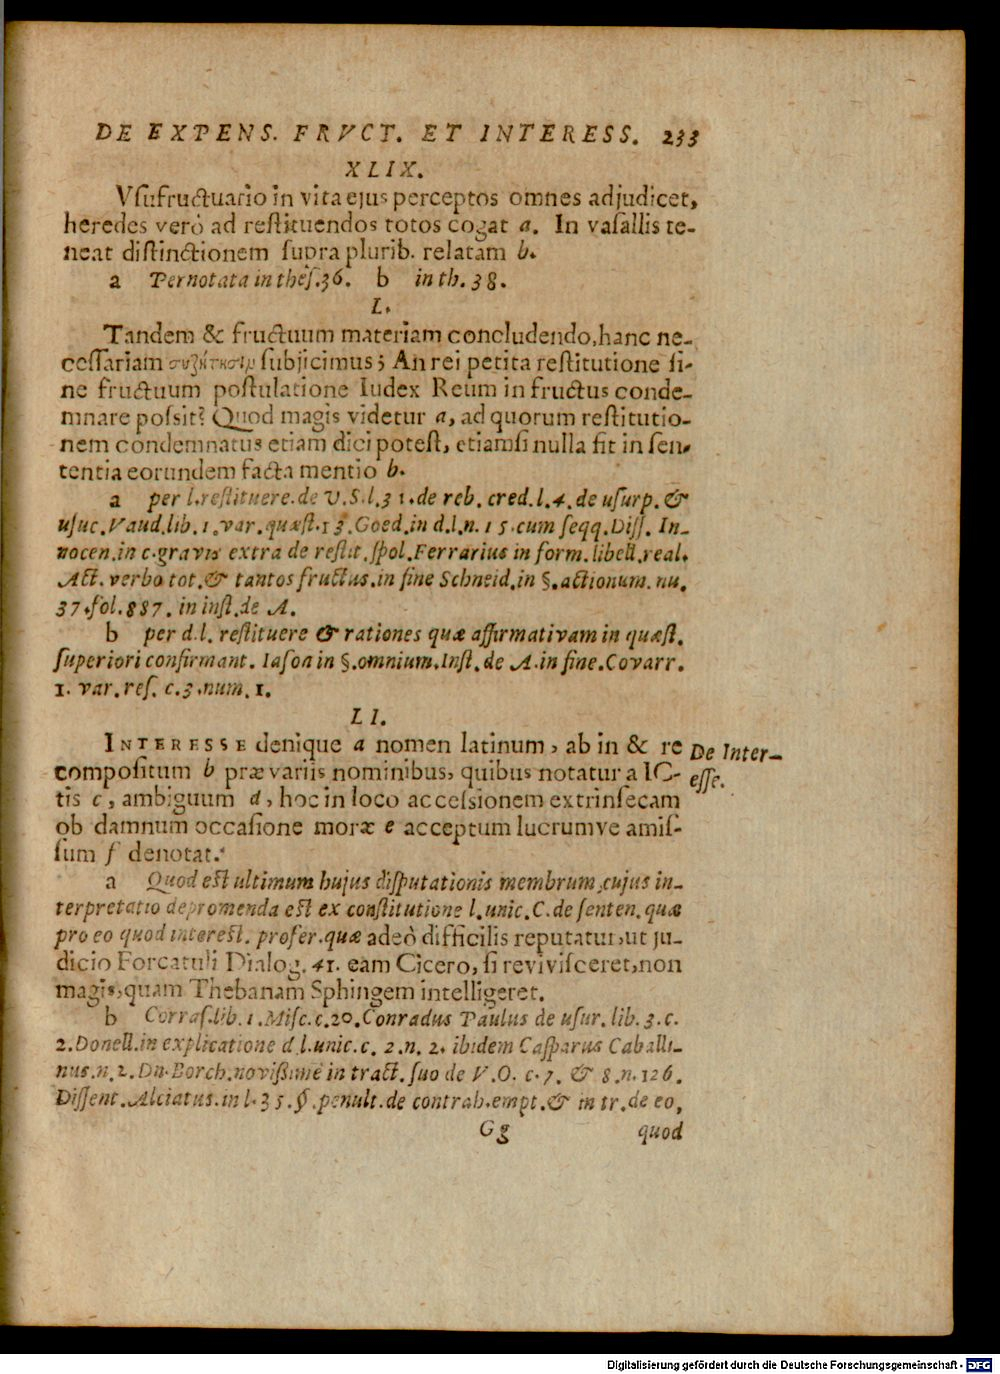 DE EXPENS. FRVCT. ET INTERESS. 233
XLIX.
Vſufructuario in vita ejus perceptos omnes adjudicet,
heredes verò ad reſtituendos totos cogat a. In vaſallis te-
neat diſtinctionem ſupra plurib. relatam b.
a Per notata in theſ. 36. b in th. 38.
L.
Tandem & fructuum materiam concludendo, hanc ne-
ceſſariam συζήτησιν ſubjicimus; An rei petita reſtitutione ſi-
ne fructuum poſtulatione Iudex Reum in fructus conde-
mnare poſsit? Quod magis videtur a, ad quorum reſtitutio-
nem condemnatus etiam dici poteſt, etiamſi nulla ſit in ſen-
tentia eorundem facta mentio b.
a per l. reſtituere. de V. S. l. 31. de reb. cred. l. 4. de uſurp. &
uſuc. Vaud. lib. 1. var. quæſt. 13. Goed. in d. l. n. 15. cum ſeqq. Diſſ. In-
nocen. in c. gravis extra de reſtit. ſpol. Ferrarius in form. libell. real.
Act. verbo tot. & tantos fructus. in fine Schneid. in §. actionum. nu.
37. fol. 887. in inſt. de A.
b per d. l. reſtituere & rationes quæ affirmativam in quæſt.
ſuperiori confirmant. Iaſon in §. omnium. Inſt. de A. in fine. Covarr.
1. var. reſ. c. 3. num. 1.
LI.
INTERESSE denique a nomen latinum, ab in & re
De Inter-
compoſitum b præ variis nominibus, quibus notatur a IC-
eſſe.
tis c, ambiguum d, hoc in loco acceſsionem extrinſecam
ob damnum occaſione moræ e acceptum lucrumve amiſ-
ſum f denotat.
a Quod eſt ultimum hujus diſputationis membrum, cujus in-
terpretatio depromenda eſt ex conſtitutione l. unic. C. de ſenten. quæ
pro eo quod intereſt. profer. quæ adeò difficilis reputatur, ut ju-
dicio Forcatuli Dialog. 41. eam Cicero, ſi reviviſceret, non
magis, quam Thebanam Sphingem intelligeret.
b Corraſ. lib. 1. Miſc. c. 20. Conradus Paulus de uſur. lib. 3. c.
2. Donell. in explicatione d. l. unic. c. 2. n. 2. ibidem Caſparus Caballi-
nus. n. 2. Dn. Borch. noviſſimè in tract. ſuo de V. O. c. 7. & 8. n. 126.
Diſſent. Alciatus. in l. 35. §. penult. de contrah. empt. & in tr. de eo,
Gg quod
Digitalisierung gefördert durch die Deutsche Forschungsgemeinschaft - DFG